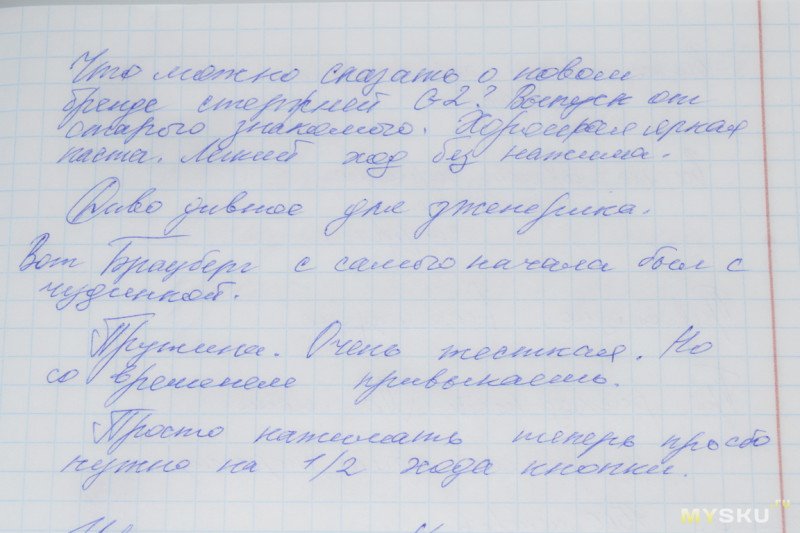 Что можно сказать о новом
бренде стержней G-2? Выпуск от
старого знакомого. Хорошая яркая
паста. Легкий ход без нажима.
Диво дивное для дженерика.
Вот Брауберг с самого начала был с
чудинкой.
Пружина. Очень жесткая. Но
со временем привыкаешь.
Просто нажимать теперь просто
нужно на 1/2 хода кнопки.
MYSKU.ru